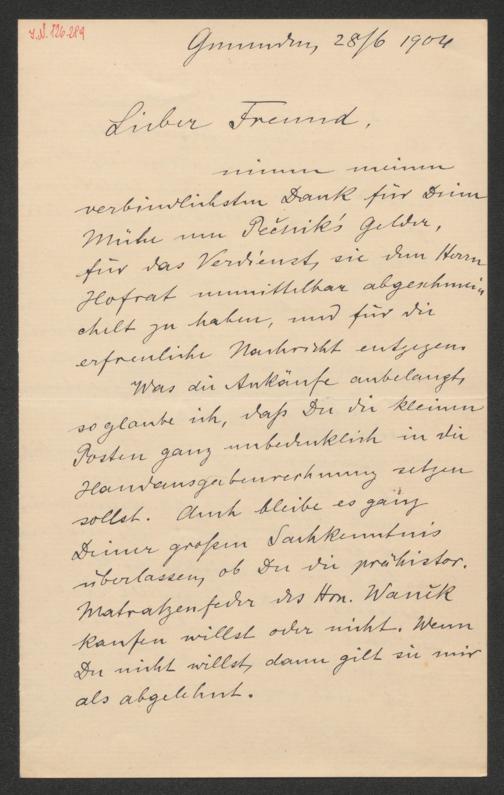 J.N. 126.289
Gmunden, 28/6 1904
Lieber Freund,
nimm meinen
verbindlichsten Dank für Deine
Mühe um Pečnik's Gelder,
für das Verdienst, sie dem Herrn
Hofrat unmittelbar abgeschmei-
chelt zu haben, und für die
erfreuliche Nachricht entgegen.
Was die Ankäufe anbelangt,
so glaube ich, daß Du die kleinen
Posten ganz unbedenklich in die
Handausgabenrechnung setzen
sollst. Auch bleibe es ganz
Deiner großen Sachkenntnis
überlassen, ob Du die prähistor.
Matratzenfeder des Hrn. Waněk
kaufen willst oder nicht. Wenn
Du nicht willst, dann gilt sie mir
als abgelehnt.